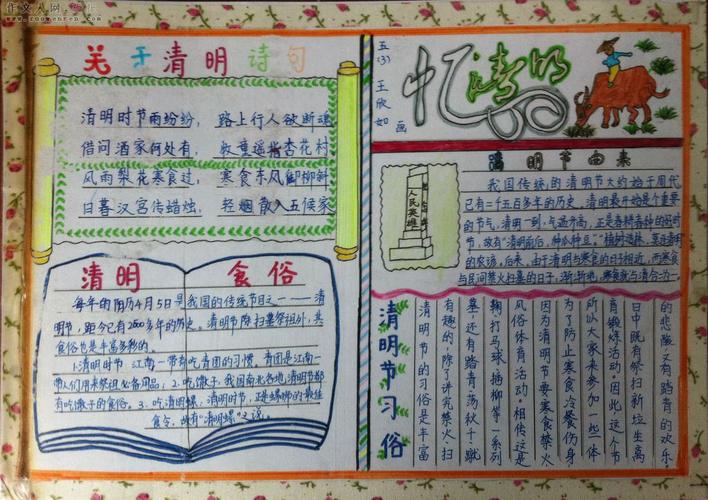 作文人网
www.zuowenren.com
关于清明诗句
清明时节雨纷纷,路上行人欲断魂
借问酒家何处有,牧童遥指杏花村
风雨梨花寒食过,寒食东风御柳斜
日暮汉宫传蜡烛,轻烟散入五侯家
清明 食俗
每年的阳历4月5日是我国的传统节日之一——清
明节,距今已有2500多年的历史。清明节除扫墓祭祖外,其
食俗也是丰富多彩的
1.清明时节江南一带有吃青团的习惯。青团是江南一
带人们用来祭祖必备用品;2.吃馓子,我国南北各地清明节都
有吃馓子的食俗。3.吃清明螺,清明时节,正是螺蛳的最佳
食令,故有"清明螺"之说。
五(3)王欣如画
忆清明
清明节由来
人民英雄
我国传统的清明节大约始于周代
已有二千五百多年的历史,清明最开始是个重要
的节气,清明一到,气温升高,正是春耕春种的好时
节,故有"清明前后,种瓜种豆""植树造林,莫过清明"
的农谚。后来,由于清明与寒食的日子相近,而寒食
与民间禁火扫墓的日子,渐渐地,寒食就与清合为一
清明节习俗
清明节的习俗是丰富
有趣的,除了讲究禁火、扫
墓,还有踏青、荡秋千、蹴
鞠、打马球、插柳等一系列
风俗体育活动。相传这是
因为清明节要寒食禁火,
为了防止寒食冷餐伤身,
所以大家来参加一些体
育锻炼活动。因此,这个节
日中既有祭扫新坟生离
的悲酸,又有踏青的欢乐。